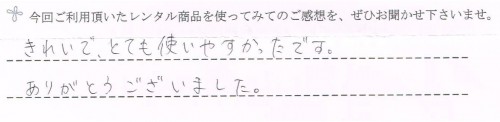 今回ご利用頂いたレンタル商品を使ってみてのご感想を、ぜひお聞かせ下さいませ。
きれいで、とても使いやすかったです。
ありがとうございました。